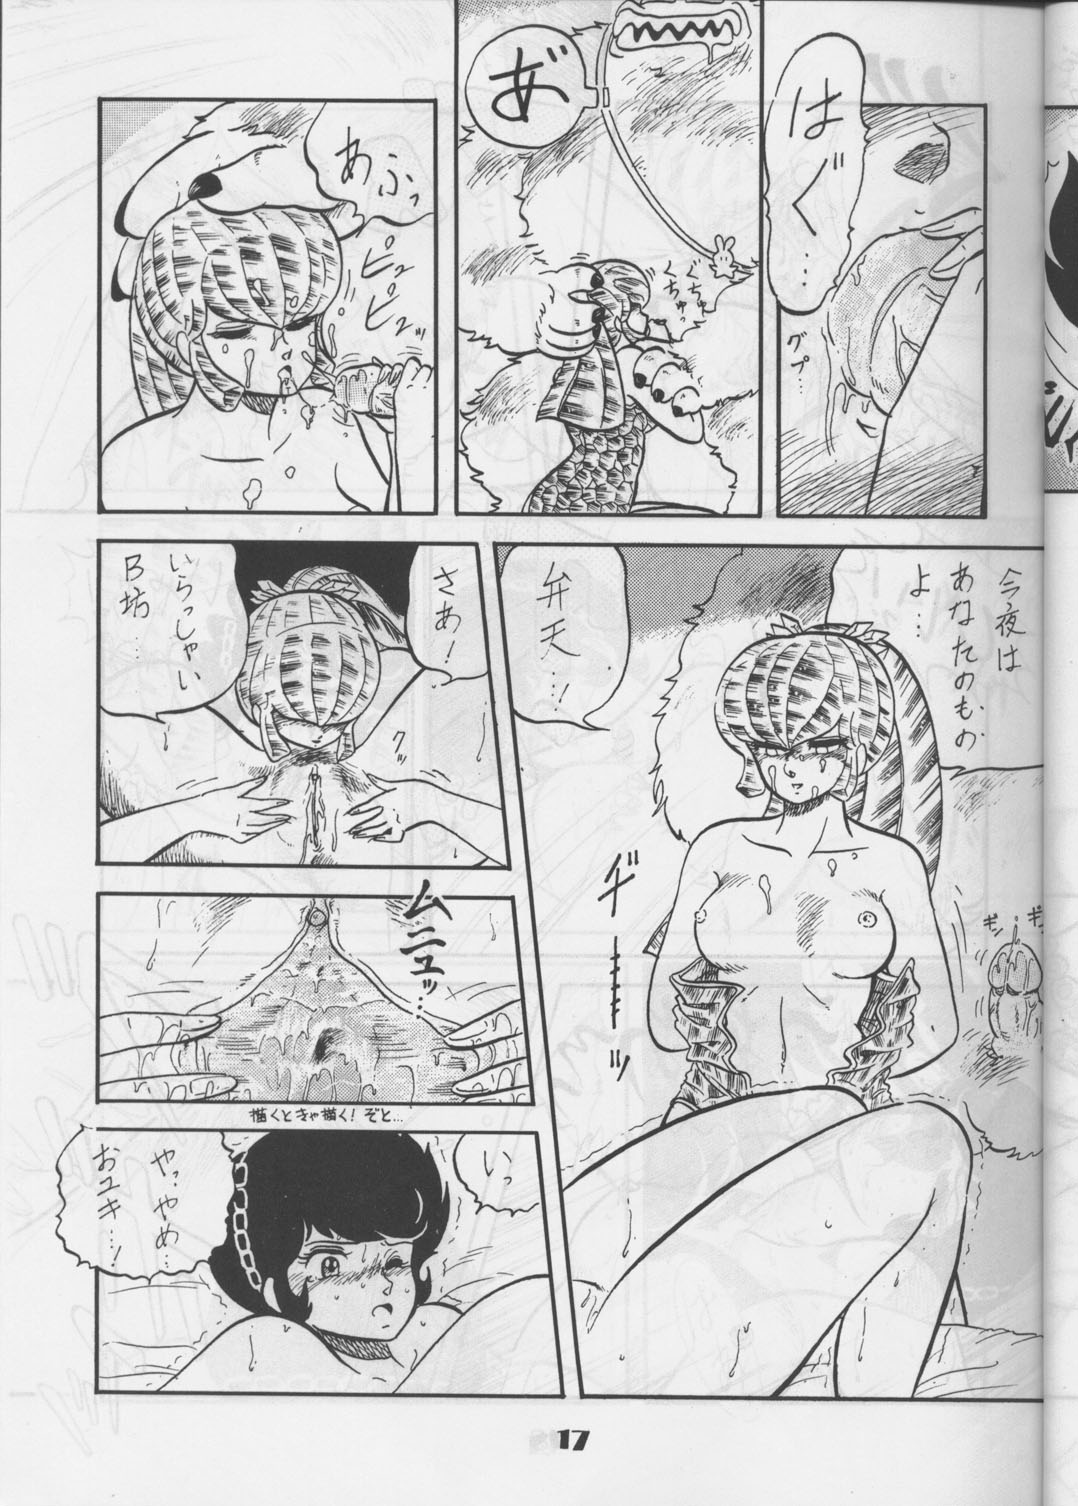 はぐ…
グプ…
あ゛
くちゅ
くちゅっ
あふっ
ピュ
ピュッ
今夜は
あなたのもの
よ…
弁天…!
ギ
ッ
ギン
ギン
さあ!
いらっしゃい
B坊…
クッ
ムニュッ…
描くときゃ描く!ぞと…
いっ
やっやめ…
おユキ…!
17